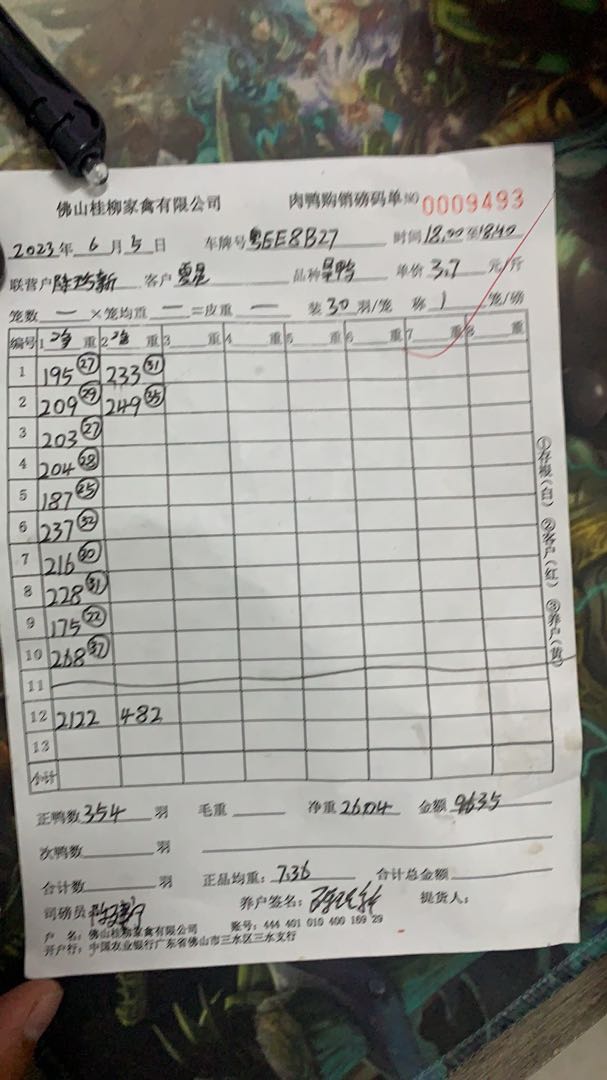 佛山桂柳家禽有限公司 肉鸭购销磅码单 NO 0009493
2023年 6月 5日 车牌号 粤EE8B27 时间 18.00至1840
联营户 客户 品种 旱鸭 单价 3.7 元/斤
笼数 一 ×笼均重 一 =皮重 一 装 30 羽/笼 称 1 笼/磅
编号 1 净 重 2 净 重 3 重 4 重 5 重 6 重 7 重 8 重
1 195 27 233 31
2 209 29 249 35
3 203 27
4 204 28
5 187 25
6 237 32
7 216 30
8 228 31
9 175 22
10 268 37
11
12 2122 482
13
合计
正鸭数 354 羽 毛重 净重 2604 金额 9635
次鸭数 羽
合计数 羽 正品均重: 7.36 合计总金额
司磅员 养户签名: 提货人:
户 名: 佛山桂柳家禽有限公司 账号: 444 401 010 400 169 29
开户行: 中国农业银行广东省佛山市三水区三水支行
①存根(白) ②客户(红) ③养户(黄)